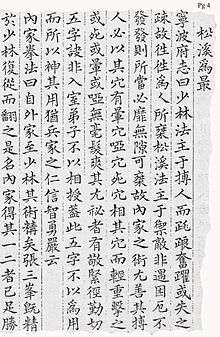 Pg 4
松溪爲最
寧波府志曰少林法主于搏人而跳踉奮躍或失之
疎故往往爲人所乗松溪法主于禦敵非遇困厄不
發發則所當必靡無隙可乗故内家之術尤善其搏
人必以其穴有暈穴啞穴死穴相其穴而輕重擊之
或死或暈或啞無毫髮爽其尤秘者有敬緊徑勤切
五字訣非入室弟子不以相授蓋此五字不以爲用
而所以神其用猶兵家之仁信智勇嚴云
内家拳法曰自外家至少林其術精矣張三峯既精
於少林復從而翻之是名内家得其一二者已足勝